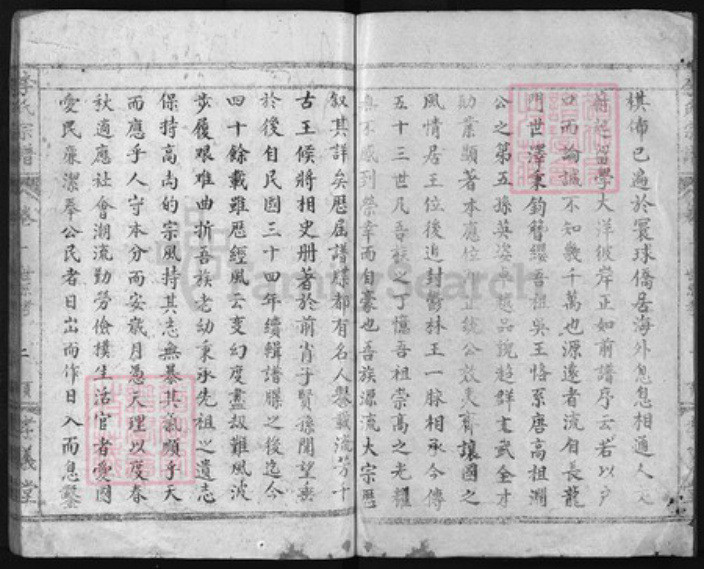 棋佈已遍於寰球僑居海外息息相通人
留學大洋彼岸正如前譜序云若以戶
口而論誠不知幾千萬也源遠者流自長龍
門世澤秉鈞簪纓吾祖吳王恪系唐高祖淵
公之第五孫英姿品貌超群文武全才
勛業顯著本應位正統公效夷齊讓國之
風情居王位後追封鬱林王一脉相承今傳
五十三世凡吾族之丁憶吾祖宗高之光耀
無不感到榮幸而自豪也吾族源流大宗歷
叙其詳矣歷屆譜牒都有名人舉載流芳千
古王候將相史册著於前肖子賢孫聞望垂
於後自民國三十四年續輯譜牒之後迄今
四十餘載雖歷經風云变幻度盡艱難風波
步履艰难曲折吾族老幼秉承先祖之遺志
保持高尚的宗風持其志無暴其氣順乎天
而應乎人守本分而安歲月憑天理以度春
秋適應社會潮流勤勞儉樸生活官者愛國
愛民廉潔奉公民者日出而作日入而息鑿
李氏宗譜
卷一
世系考
二頁
孝義堂
FamilySearch